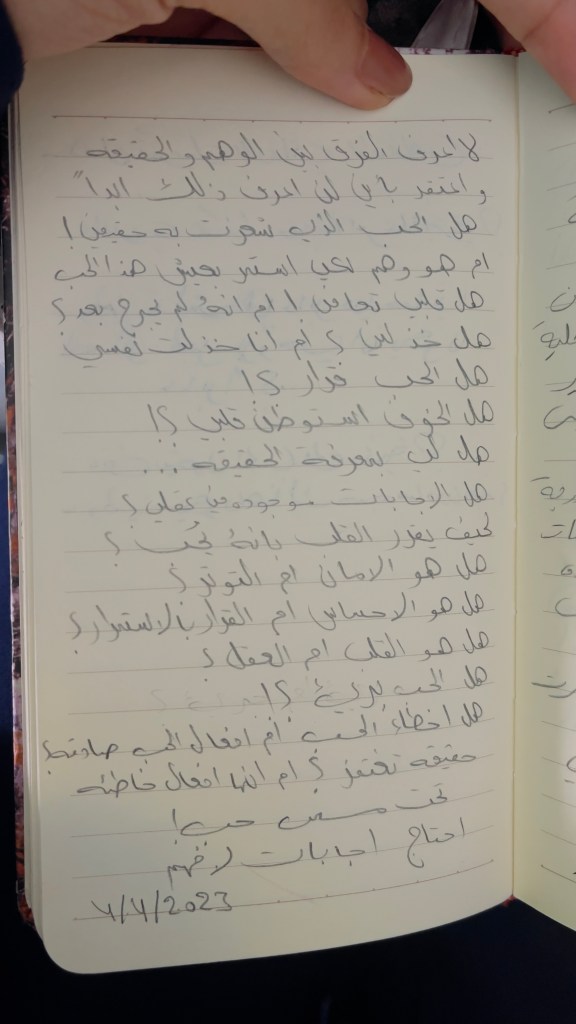 لا اعرف الفرق بين الوهم والحقيقه
واعتقد بأني لن اعرف ذلك ابداً
هل الحب الذي شعرت به حقيقي!
ام هو وهم لكي استمر بعيش هذا الحب
هل قلبي تعافى! ام انهُ لم يجرح بعد؟
هل خذلني؟ أم انا خذلت نفسي
هل الحب قرار؟!
هل الخوف استوطن قلبي؟!
هل لي بمعرفة الحقيقه...
هل الاجابات موجوده في عقلي؟
كيف يقرر القلب بانهُ يُحب؟
هل هو الامان ام التوتر؟
هل هو الاحساس ام القرار بالاستمرار؟
هل هو القلب ام العقل؟
هل الحب بريء؟!
هل اخطاء الحب أم افعال الحب صادقه؟
حقيقه تغتفر؟ ام انها افعال خاطئه
تحت مسمى حب!
احتاج اجابات لافهم
4/4/2023